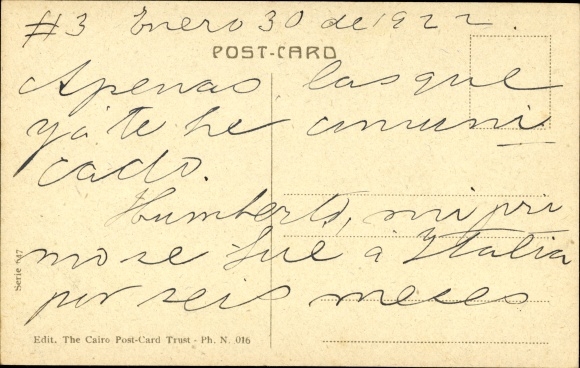 #3 Enero 30 de 1922.
POST-CARD
Apenas las que
ya te he comuni
cado.
Humberto, mi pri
mo se fue á Italia
por seis meses
Serie 647
Edit. The Cairo Post-Card Trust - Ph. N. 016